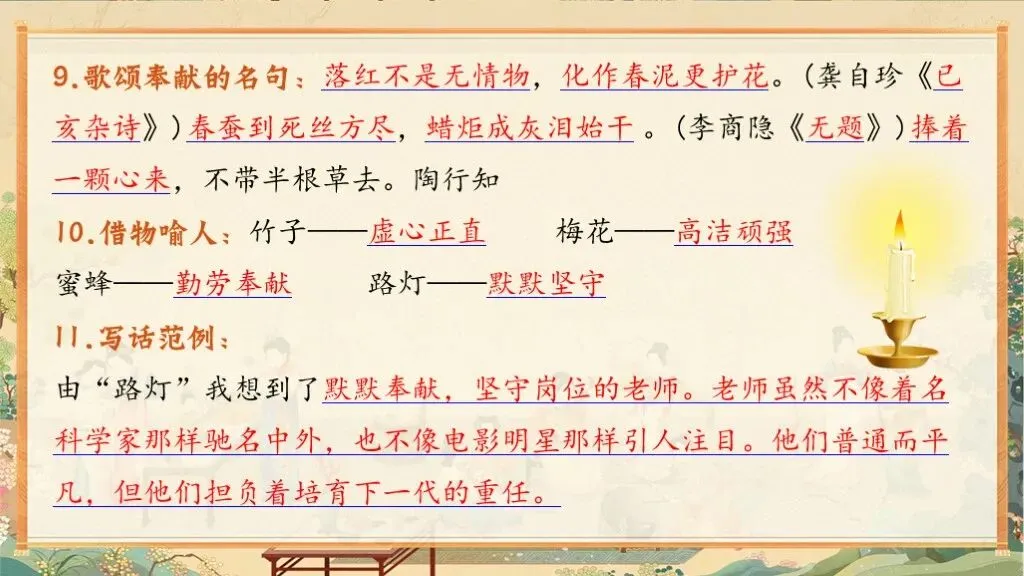 9.歌颂奉献的名句：落红不是无情物，化作春泥更护花。(龚自珍《已
亥杂诗》)春蚕到死丝方尽，蜡炬成灰泪始干。(李商隐《无题》)捧着
一颗心来，不带半根草去。陶行知
10.借物喻人：竹子——虚心正直 梅花——高洁顽强
蜜蜂——勤劳奉献 路灯——默默坚守
11.写话范例：
由“路灯”我想到了默默奉献，坚守岗位的老师。老师虽然不像着名
科学家那样驰名中外，也不像电影明星那样引人注目。他们普通而平
凡，但他们担负着培育下一代的重任。